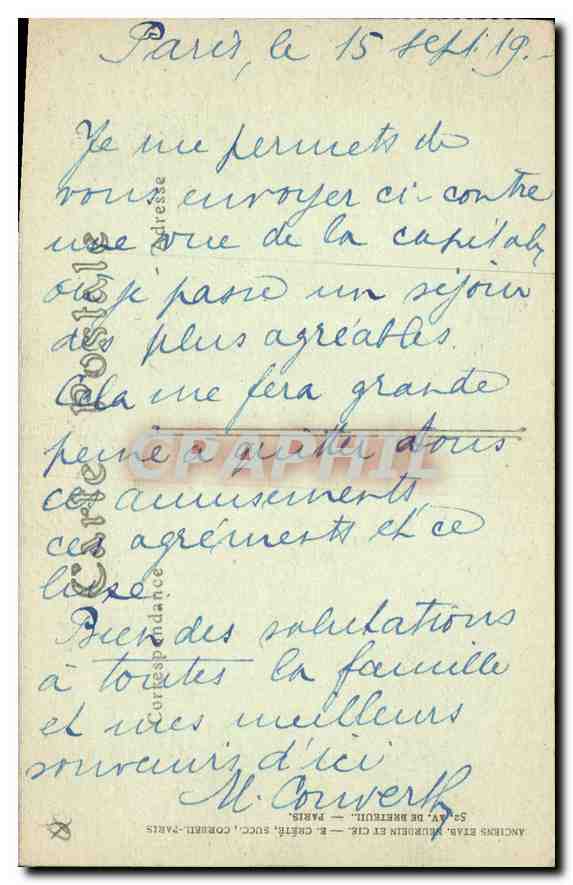 Paris, le 15 sept. 19.-
Je me permets de
vous envoyer ci-contre
une vue de la capitale
où je passe un séjour
des plus agréables.
Cela me fera grande
peine à quitter tous
ces amusements,
ces agréments et ce
luxe.
Bien des salutations
à toutes la famille
et mes meilleurs
souvenirs d'ici
M. Conwerth
Carte Postale
Correspondance
Adresse
CPAPHIL
ANCIENS ETAB. NEURDEIN ET CIE. — E. CRÉTÉ, SUCC., CORBEIL-PARIS
52, AV. DE BRETEUIL. — PARIS.